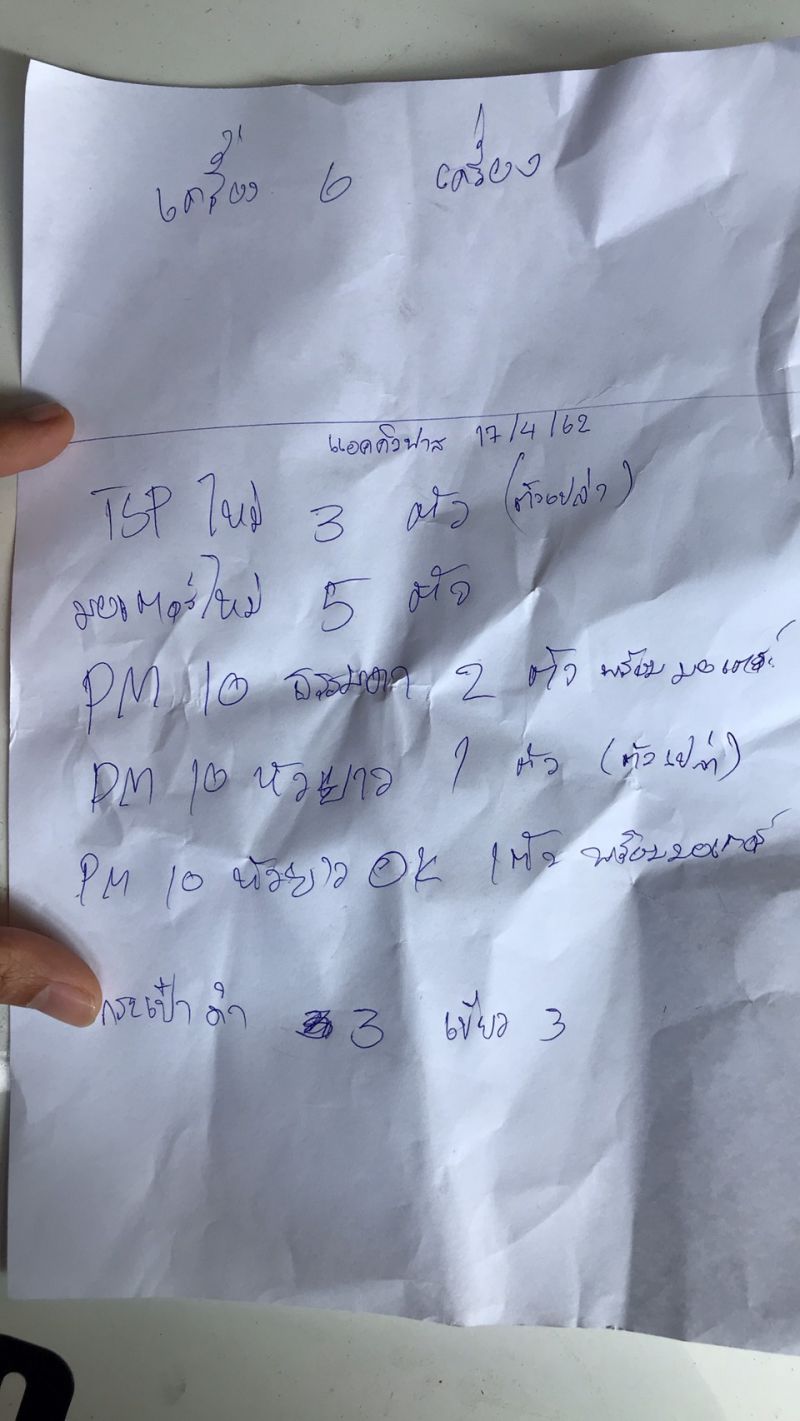 เครื่อง 6 เครื่อง
แอคควิฟาส 17/4/62
TSP ใหม่ 3 ตัว (ตัวเปล่า)
มอเตอร์ใหม่ 5 ตัว
PM 10 ธรรมดา 2 ตัว พร้อมมอเตอร์
PM 10 หัวยาว 1 ตัว (ตัวเปล่า)
PM 10 หัวยาว OK 1 ตัว พร้อมมอเตอร์
กระเป๋าดำ 3 เขียว 3